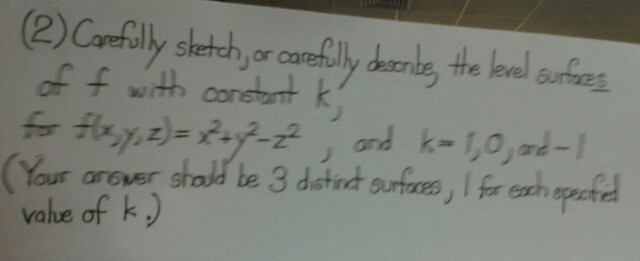 (2) Carefully sketch, or carefully describe, the level surfaces
of f with constant k,
for f(x,y,z)=x²+y²-z² , and k=1,0,and-1
(Your answer should be 3 distinct surfaces, 1 for each specified
value of k.)